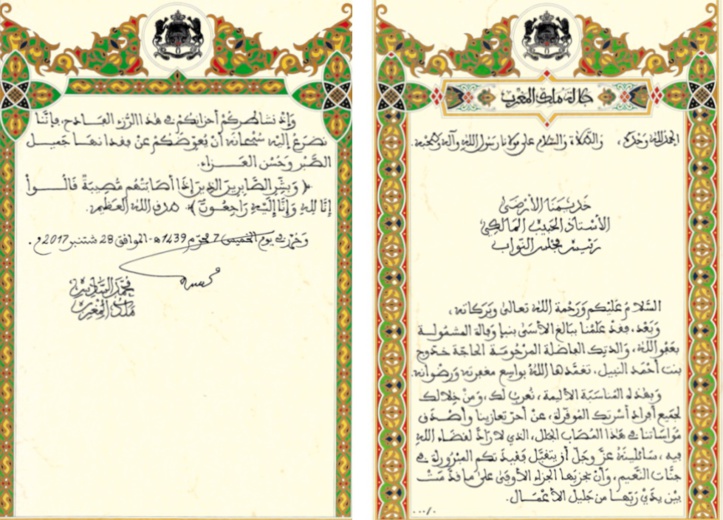 جلالة ملك المغرب
الحمد لله وحده، والصلاة والسلام على مولانا رسول الله وآله وصحبه.
خديمنا الأرضى
الأستاذ الحبيب المالكي
رئيس مجلس النواب
السلام عليكم ورحمة الله تعالى وبركاته،
وبعد، فقد علمنا ببالغ الأسى بنبإ وفاة المشمولة
بعفو الله، والدتك الفاضلة المرحومة الحاجة خدوج
بنت احمد النبيل، تغمدها الله بواسع مغفرته ورضوانه.
وبهذه المناسبة الأليمة، نعرب لك، ومن خلالك
لجميع أفراد أسرتك الموقرة، عن أحر تعازينا وأصدق
مواساتنا في هذا المصاب الجلل، الذي لا راد لقضاء الله
فيه، سائلينه عز وجل أن يتقبل فقيدتكم المبرورة في
جنات النعيم، وأن يجزيها الجزاء الأوفى على ما قدمت
بين يدي ربها من جليل الأعمال.
.../.
وإذ نشاطركم أحزانكم في هذا الرزء الفادح، فإننا
نضرع إليه سبحانه أن يعوضكم عن فقدانها جميل
الصبر وحسن العزاء.
﴿وبشر الصابرين الذين إذا أصابتهم مصيبة قالوا
إنا لله وإنا إليه راجعون﴾ صدق الله العظيم.
وحرر في يوم الخميس 7 محرم 1439هـ-الموافق 28 شتنبر 2017م.
محمد السادس
ملك المغرب